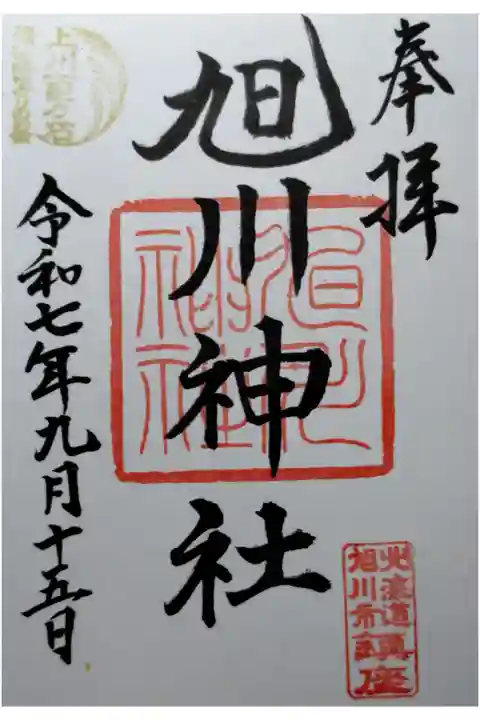 奉拝
旭川神社
令和七年九月十五日
旭川神社
北海道
旭川市鎮座